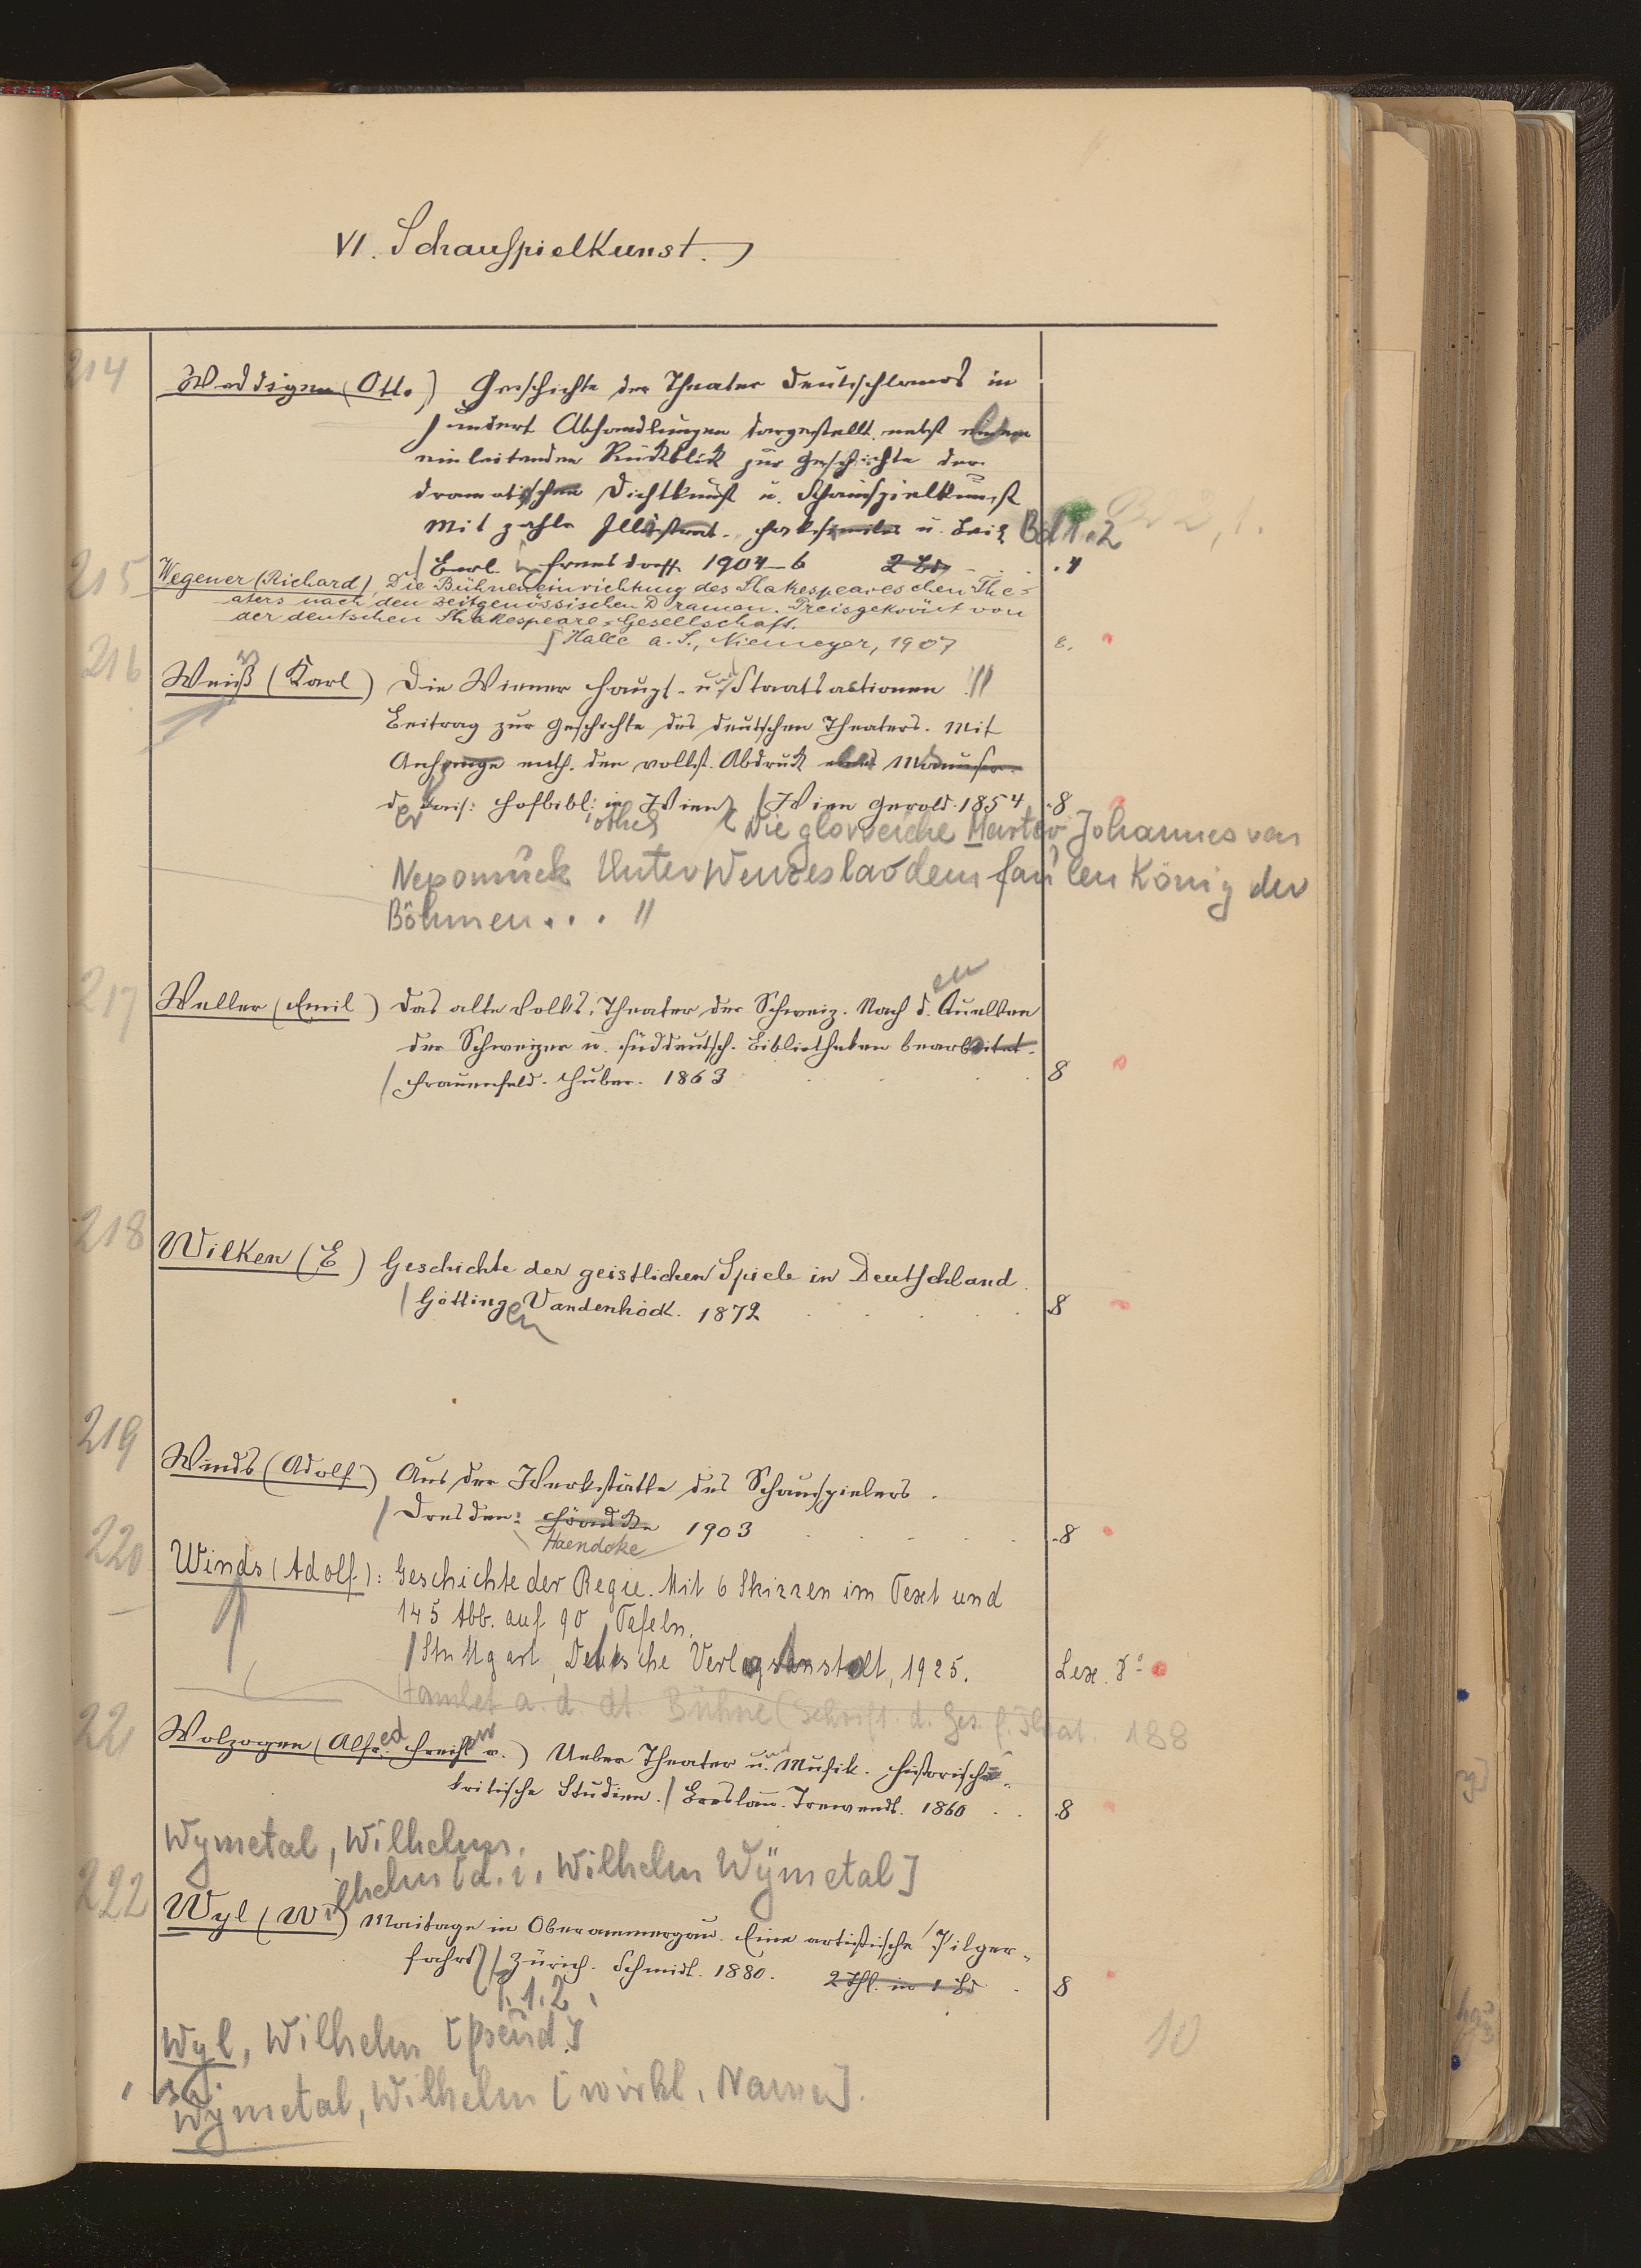 VI. Schauspielkunst.
214
Weddigen (Otto) Geschichte der Theater Deutschlands in
hundert Abhandlungen dargestellt nebst einem
einleitenden Rückblick zur Geschichte der
dramatischen Dichtkunst u. Schauspielkunst
Mit zahlr Illustrat. Faksimiles u. Beil Bd 1.2 Bd 2, 1.
Berl. Frensdorff 1904-6 2 Bd . 4
215
Wegener (Richard), Die Bühneneinrichtung des Shakespeareschen The-
aters nach den zeitgenössischen Dramen. Preisgekrönt von
der deutschen Shakespeare-Gesellschaft.
Halle a. S., Niemeyer, 1907 8.
216
Weiß (Karl) Die Wiener Haupt- und Staatsactionen
Beitrag zur Geschichte des deutschen Theaters. Mit
Anhange enth. den vollst. Abdruck eines Manuscr.
der kais: Hofbibl: in Wien / Wien Gerold. 1854 .8
othek Die glorreiche Marter Johannes von
Nepomuck Unter Wenzeslao dem faulen König der
Böhmen . . . "
217
en
Weller (Emil) Das alte Volks-Theater der Schweiz. Nach d. Quellen
der Schweizer u. süddeutsch. Bibliotheken bearbeitet.
/ Frauenfeld. Huber. 1863 8
218
Wilken (E) Geschichte der geistlichen Spiele in Deutschland.
/ Göttingen Vandenhöck. 1872 .8
219
Winds (Adolf) Aus der Werkstätte des Schauspielers.
/ Dresden: Höndke 1903 .8
Haendcke
220
Winds (Adolf): Geschichte der Regie. Mit 6 Skizzen im Text und
145 Abb. auf 90 Tafeln.
/ Stuttgart, Deutsche Verlagsanstalt, 1925. Lex. 8°
Hamlet a. d. dt. Bühne (Schrift. d. Ges. f. Theat. 188
221
Wolzogen (Alfred Freih v.) Ueber Theater und Musik. Historisch-
kritische Studien. / Breslau. Trewendt. 1860 . . .8
Wymetal, Wilhelm.
222
ilhelm [d. i. Wilhelm Wÿmetal]
Wyl (W) Maitage in Oberammergau. Eine artistische Pilger-
fahrt / Zürich. Schmidt. 1880. 2 Thl. in 1 Bd 8
T. 1. 2.
Wyl, Wilhelm [pseud.]
s.
10
Wymetal, Wilhelm [wirkl. Name].